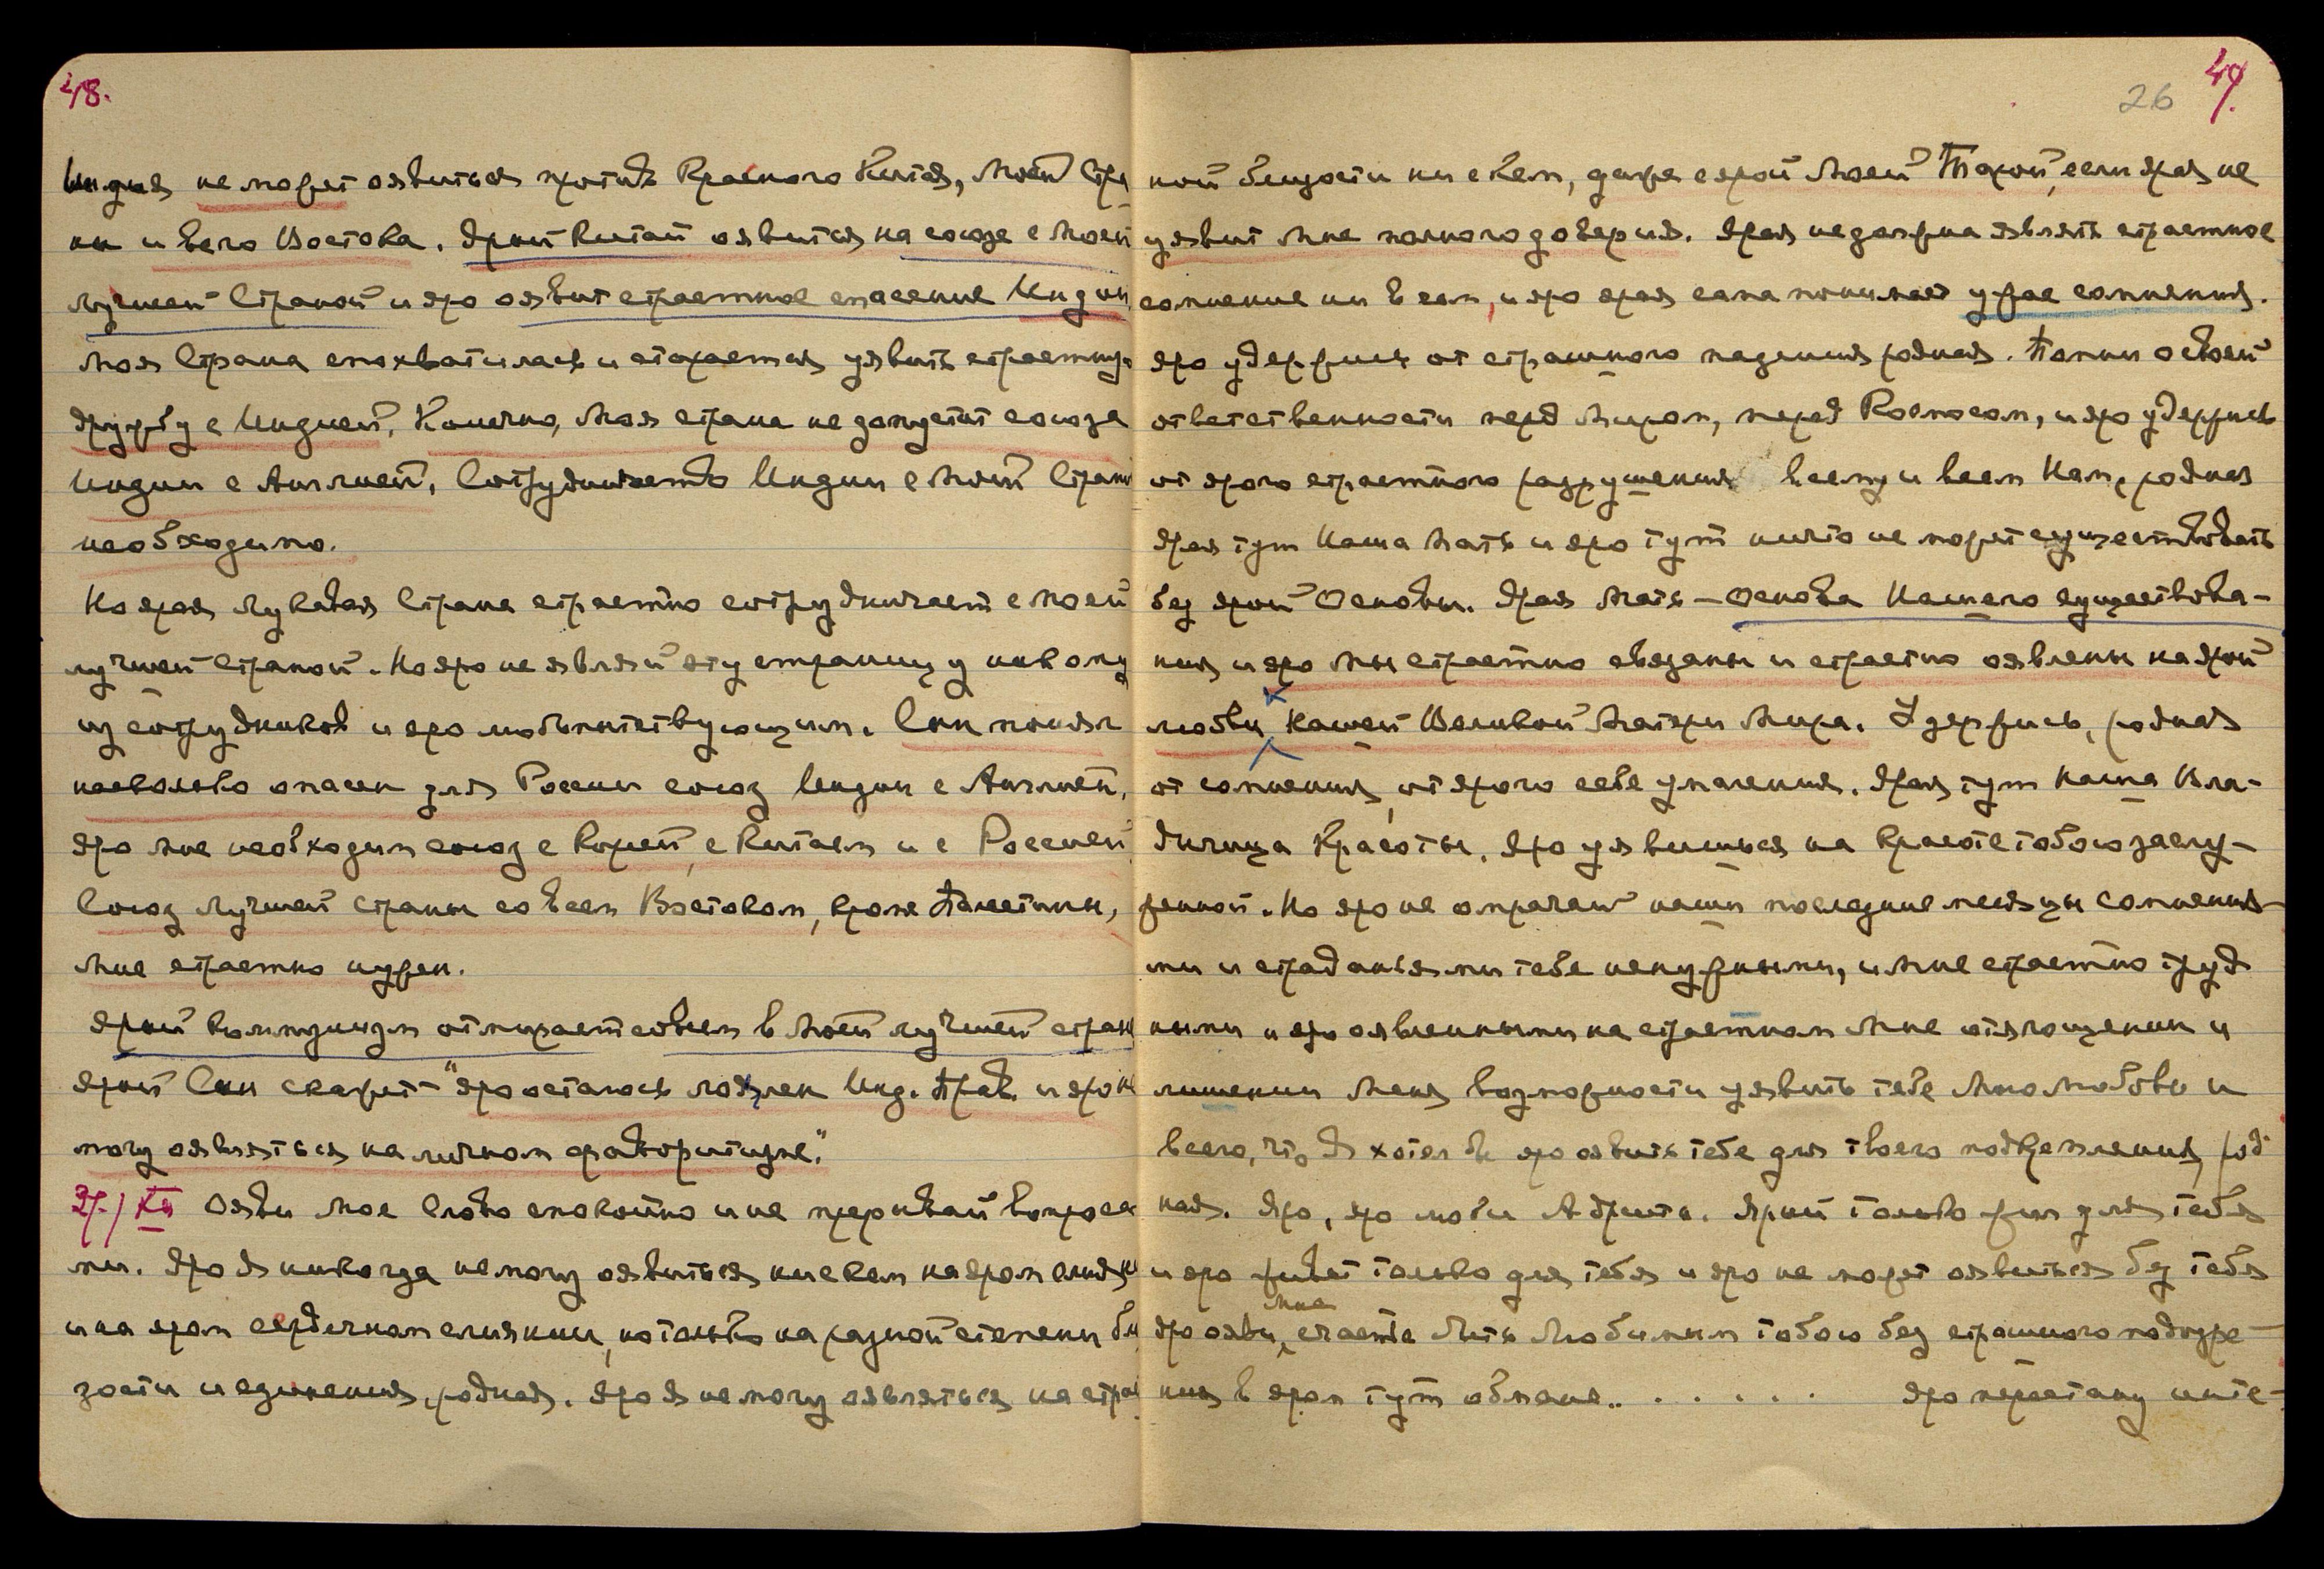 48.
Индия не может оявиться против Красного Китая, Моей Стра
ны и всего Востока. Ярый Китай оявится на союзе с Моей
лучшей Страной и яро оявит страстное спасение Индии
Моя Страна спохватилась и старается уявить страстную
дружбу с Индией, Конечно, Моя страна не допустит союза
Индии с Англией, Сотрудничество Индии с Моей Страной
необходимо.
Но ярая лукавая Страна страстно сотрудничает с Моей
лучшей Страной. Но яро не являй эту страницу никому
из сотрудников и яро любопытствующим. Сын понял
насколько опасен для России союз Индии с Англией,
яро Мне необходим союз с Кореей, с Китаем и с Россией
Союз лучшей страны со всем Востоком, кроме Палестины,
Мне страстно нужен.
Ярый коммунизм отмирает совсем в Моей лучшей стране
ярый Сын скажет – "яро остаюсь лоялен Инд. Прав. и яро не
могу оявляться на личном фаворитизме."
27/XII Ояви Мое Слово спокойно и не прерывай вопроса
ми. Яро Я никогда не могу оявиться ни с кем на яром слиянии
и на яром сердечном слиянии, но только на разной степени бли
зости и единения, родная. Яро Я не могу оявляться на страст
26 49.
ной близости ни с кем, даже с ярой Моей Тарой, если ярая не
уявит Мне полного доверия. Ярая не должна являть страстное
сомнение ни в чем, и яро ярая сама понимает ужас сомнения.
Яро удержись от страшного падения родная. Помни о своей
ответственности перед Миром, перед Космосом, и яро удержись
от ярого страстного разрушения всему и всем Нам, родная
Ярая тут Наша Мать и яро тут ничто не может существовать
без ярой Основы. Ярая Мать – Основа Нашего существова-
ния и яро Мы страстно связаны и страстно оявлены на ярой
любви к Нашей Великой Матери Мира. Удержись, родная
от сомнения, от ярого себе умаления. Ярая тут Наша Вла-
дычица Красоты. Яро уявишься на Красоте тобою заслу-
женной. Но яро не омрачай наши последние месяцы сомнения-
ми и страданьями тебе ненужными, и Мне страстно труд
ными и яро оявленными на страстном Мне отягощении и
лишении Меня возможности уявить тебе Мою Любовь и
всего, что Я хотел бы яро оявить тебе для твоего подкрепления, род
ная. Яро, яро люби Адрита. Ярый только жил для тебя
и яро живет только для тебя и яро не может оявиться без тебя
Яро ояви Мне счастье быть Любимым тобою без страшного подозре-
ния в яром тут обмане.. . . . . . Яро перестану инте-